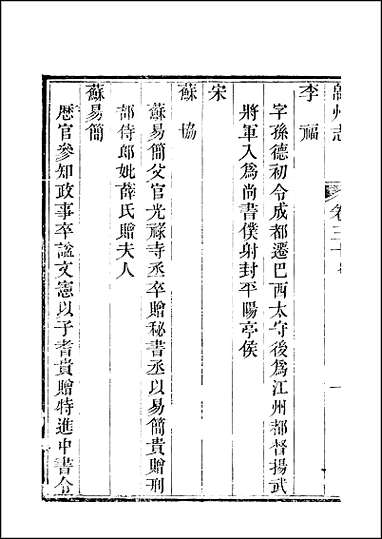 州志
卷三十
一
李福
字孫德初令成都遷巴西太守後爲江州都督揚武
將軍入爲尚書僕射封平陽亭侯
宋
蘇協
蘇易簡父官光祿寺丞卒贈秘書丞以易簡貴贈刑
部侍郎妣薛氏贈夫人
蘇易簡
歷官參知政事卒諡文憲以子耆貴贈特進中書令